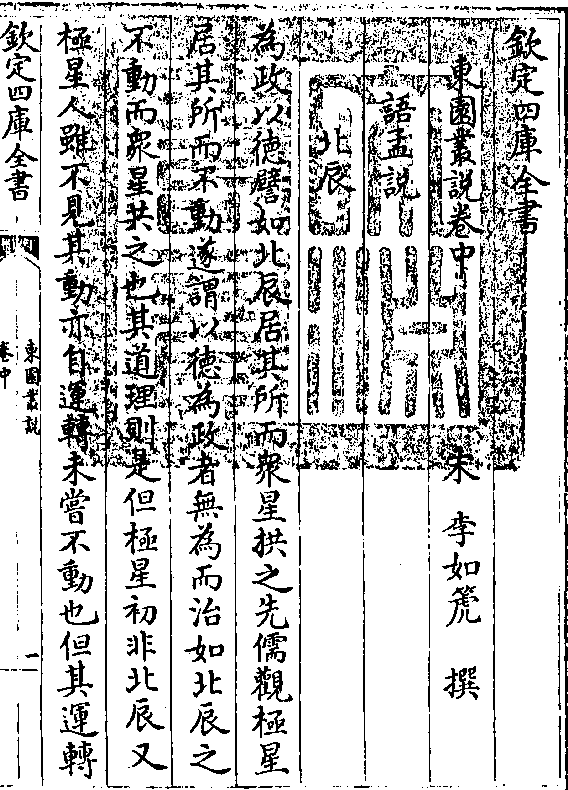 欽定四庫全書
東園叢說卷中
宋 李如箎 撰
語孟說
北辰
為政以德譬如北辰居其所而衆星拱之先儒觀極星
居其所而不動遂謂以德為政者無為而治如北辰之
不動而衆星共之也其道理則是但極星初非北辰又
極星人雖不見其動亦自運轉未嘗不動也但其運轉
欽定四庫全書
東園叢說
卷中
一